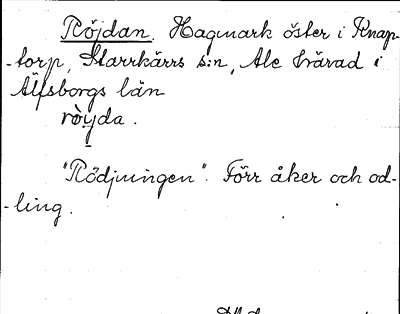 Röjdan. Hagmark öster i Knap-
-torp, Starrkärrs s:n, Ale härad i
Älfsborgs län
ròyda.
"Rödjningen". Förr åker och od-
-ling.